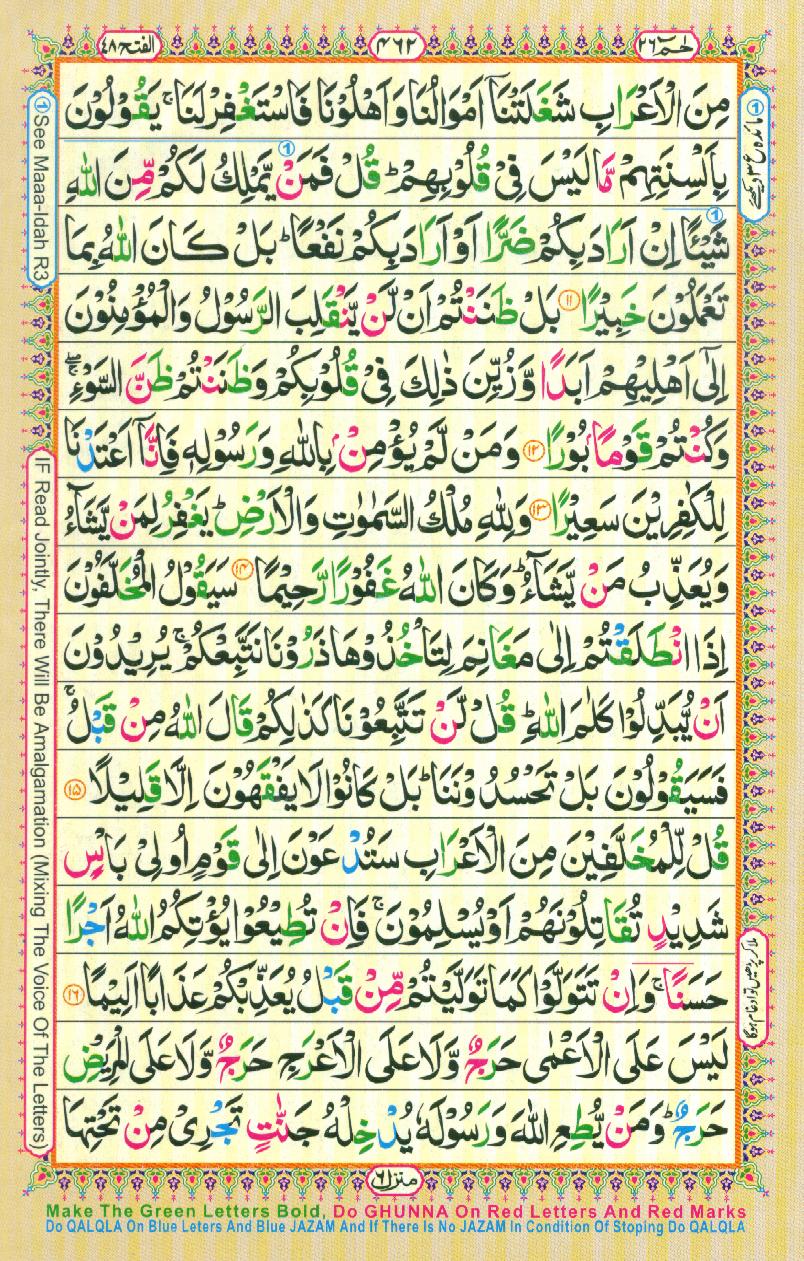 الفتح ٤٨
٤٦٢
حٰمٓ ٢٦
مِنَ الْاَعْرَابِ شَغَلَتْنَآ اَمْوَالُنَا وَاَهْلُوْنَا فَاسْتَغْفِرْ لَنَا ۚ يَقُوْلُوْنَ
بِاَلْسِنَتِهِمْ مَّا لَيْسَ فِيْ قُلُوْبِهِمْ ؕ قُلْ فَمَنْ يَّمْلِكُ لَكُمْ مِّنَ اللّٰهِ
شَيْـًٔا اِنْ اَرَادَ بِكُمْ ضَرًّا اَوْ اَرَادَ بِكُمْ نَفْعًا ؕ بَلْ كَانَ اللّٰهُ بِمَا
تَعْمَلُوْنَ خَبِيْرًا ۝۱۱ بَلْ ظَنَنْتُمْ اَنْ لَّنْ يَّنْقَلِبَ الرَّسُوْلُ وَالْمُؤْمِنُوْنَ
اِلٰٓى اَهْلِيْهِمْ اَبَدًا وَّزُيِّنَ ذٰلِكَ فِيْ قُلُوْبِكُمْ وَظَنَنْتُمْ ظَنَّ السَّوْءِ ۖۚ
وَكُنْتُمْ قَوْمًۢا بُوْرًا ۝۱۲ وَمَنْ لَّمْ يُؤْمِنْۢ بِاللّٰهِ وَرَسُوْلِهٖ فَاِنَّآ اَعْتَدْنَا
لِلْكٰفِرِيْنَ سَعِيْرًا ۝۱۳ وَلِلّٰهِ مُلْكُ السَّمٰوٰتِ وَالْاَرْضِ ؕ يَغْفِرُ لِمَنْ يَّشَآءُ
وَيُعَذِّبُ مَنْ يَّشَآءُ ؕ وَكَانَ اللّٰهُ غَفُوْرًا رَّحِيْمًا ۝۱۴ سَيَقُوْلُ الْمُخَلَّفُوْنَ
اِذَا انْطَلَقْتُمْ اِلٰى مَغَانِمَ لِتَاْخُذُوْهَا ذَرُوْنَا نَتَّبِعْكُمْ ۚ يُرِيْدُوْنَ
اَنْ يُّبَدِّلُوْا كَلٰمَ اللّٰهِ ؕ قُلْ لَّنْ تَتَّبِعُوْنَا كَذٰلِكُمْ قَالَ اللّٰهُ مِنْ قَبْلُ ۚ
فَسَيَقُوْلُوْنَ بَلْ تَحْسُدُوْنَنَا ؕ بَلْ كَانُوْا لَا يَفْقَهُوْنَ اِلَّا قَلِيْلًا ۝۱۵
قُلْ لِّلْمُخَلَّفِيْنَ مِنَ الْاَعْرَابِ سَتُدْعَوْنَ اِلٰى قَوْمٍ اُولِيْ بَاْسٍ
شَدِيْدٍ تُقَاتِلُوْنَهُمْ اَوْ يُسْلِمُوْنَ ۚ فَاِنْ تُطِيْعُوْا يُؤْتِكُمُ اللّٰهُ اَجْرًا
حَسَنًا ۚ وَاِنْ تَتَوَلَّوْا كَمَا تَوَلَّيْتُمْ مِّنْ قَبْلُ يُعَذِّبْكُمْ عَذَابًا اَلِيْمًا ۝۱۶
لَيْسَ عَلَى الْاَعْمٰى حَرَجٌ وَّلَا عَلَى الْاَعْرَجِ حَرَجٌ وَّلَا عَلَى الْمَرِيْضِ
حَرَجٌ ؕ وَمَنْ يُّطِعِ اللّٰهَ وَرَسُوْلَهٗ يُدْخِلْهُ جَنّٰتٍ تَجْرِيْ مِنْ تَحْتِهَا
منزل ٦
① See Maaa-Idah R3
IF Read Jointly, There Will Be Amalgamation (Mixing The Voice Of The Letters)
Make The Green Letters Bold, Do GHUNNA On Red Letters And Red Marks
Do QALQLA On Blue Leters And Blue JAZAM And If There Is No JAZAM In Condition Of Stoping Do QALQLA